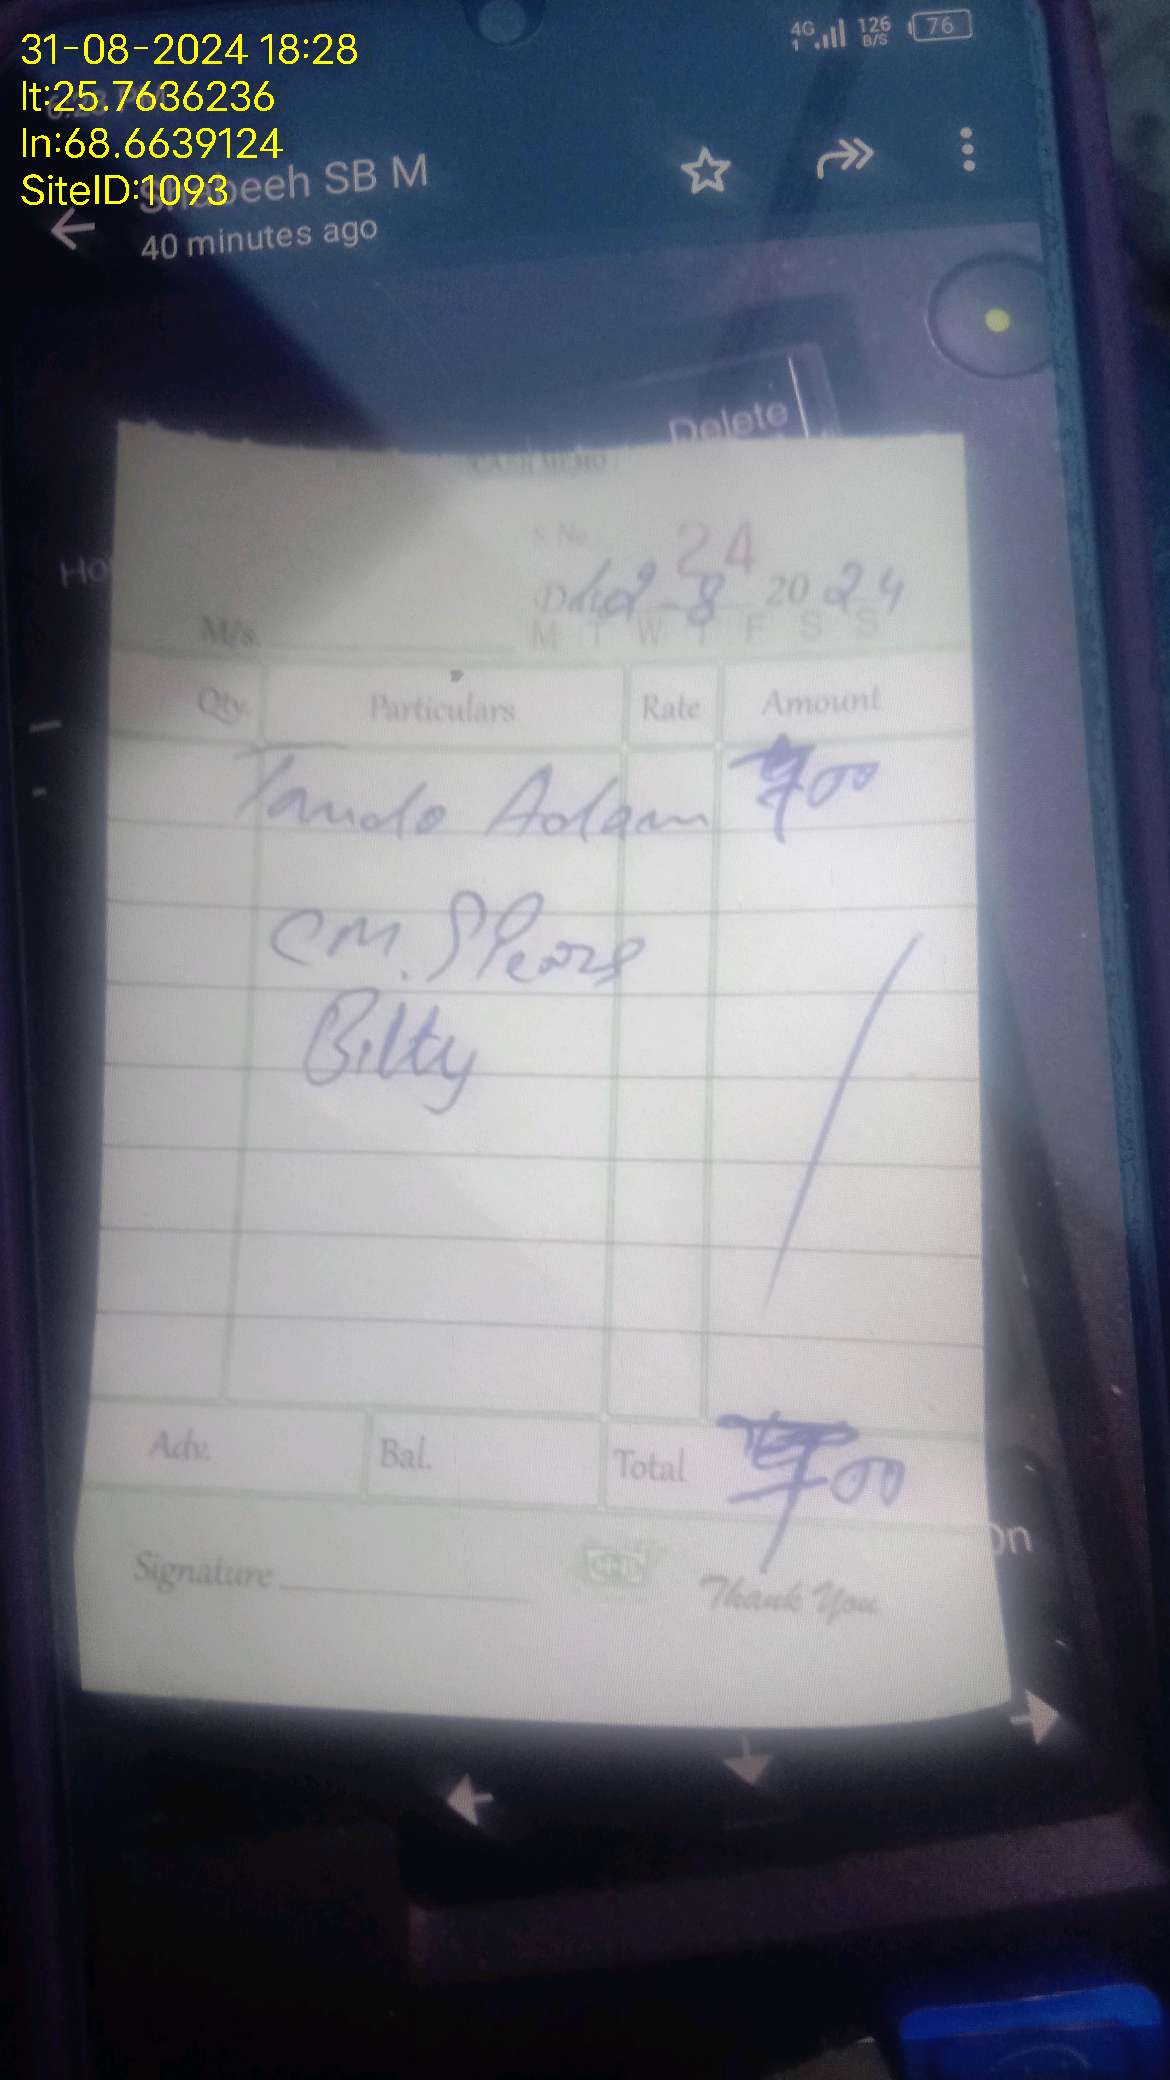 31-08-2024 18:28
lt:25.7636236
ln:68.6639124
SiteID:1093
4G 1 126 B/S 76
SB M
40 minutes ago
Delete
CASH MEMO
S.No. 24
2-8 2024
M/s.
M T W T F S S
Qty. Particulars Rate Amount
Tando Adam 700
CM. SPears
Bilty
Adv. Bal. Total 700
Signature
Thank You